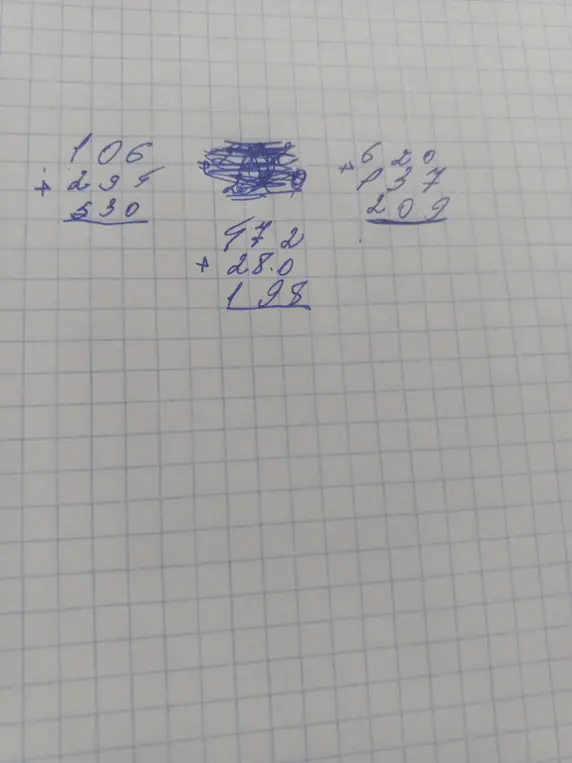 106
+ 294
530
472
+ 280
198
+ 620
137
209